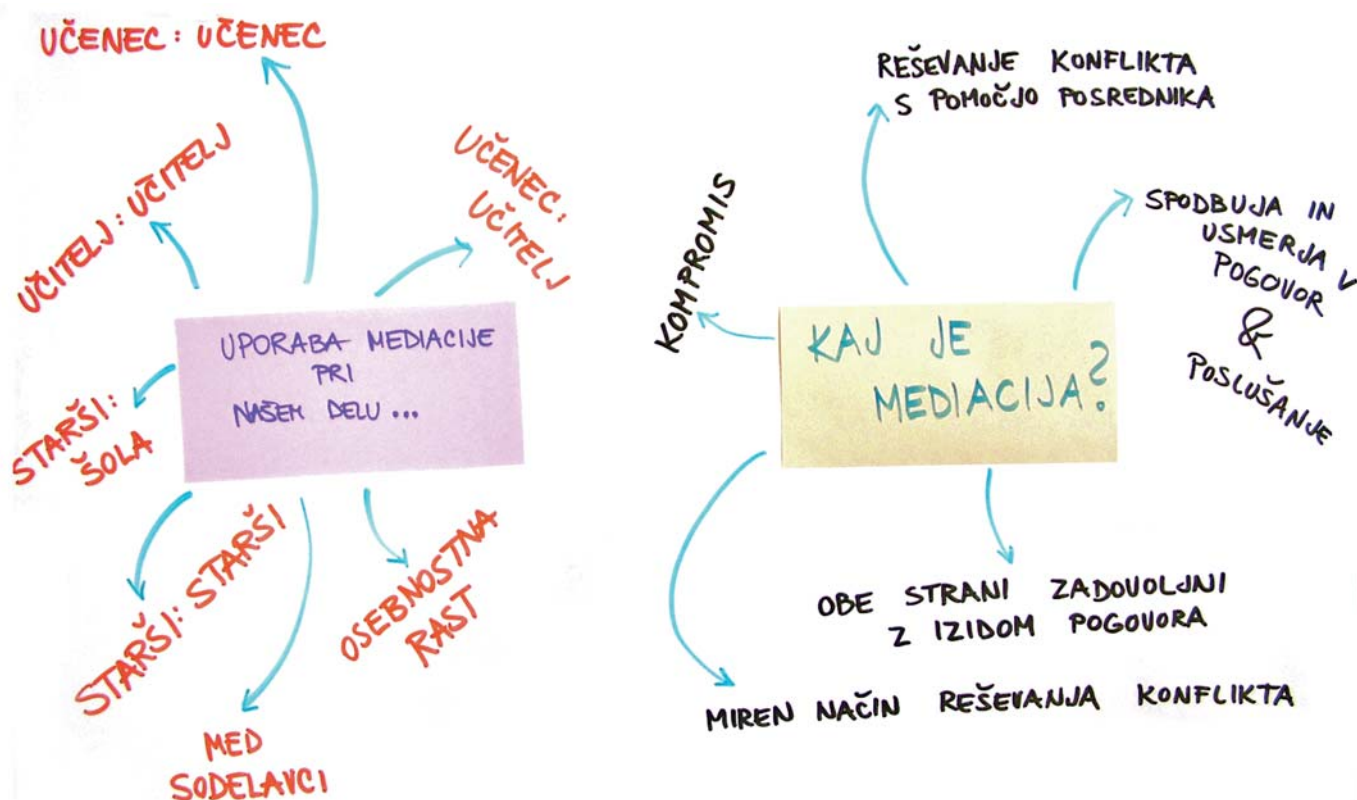 UČENEC : UČENEC
UČITELJ : UČITELJ
UČENEC :
UČITELJ
UPORABA MEDIACIJE
PRI
NAŠEM DELU ...
STARŠI :
ŠOLA
STARŠI : STARŠI
MED
SODELAVCI
OSEBNOSTNA
RAST
REŠEVANJE KONFLIKTA
S POMOČJO POSREDNIKA
KOMPROMIS
SPODBUJA IN
USMERJA V
POGOVOR
&
POSLUŠANJE
KAJ JE
MEDIACIJA?
OBE STRANI ZADOVOLJNI
Z IZIDOM POGOVORA
MIREN NAČIN REŠEVANJA KONFLIKTA